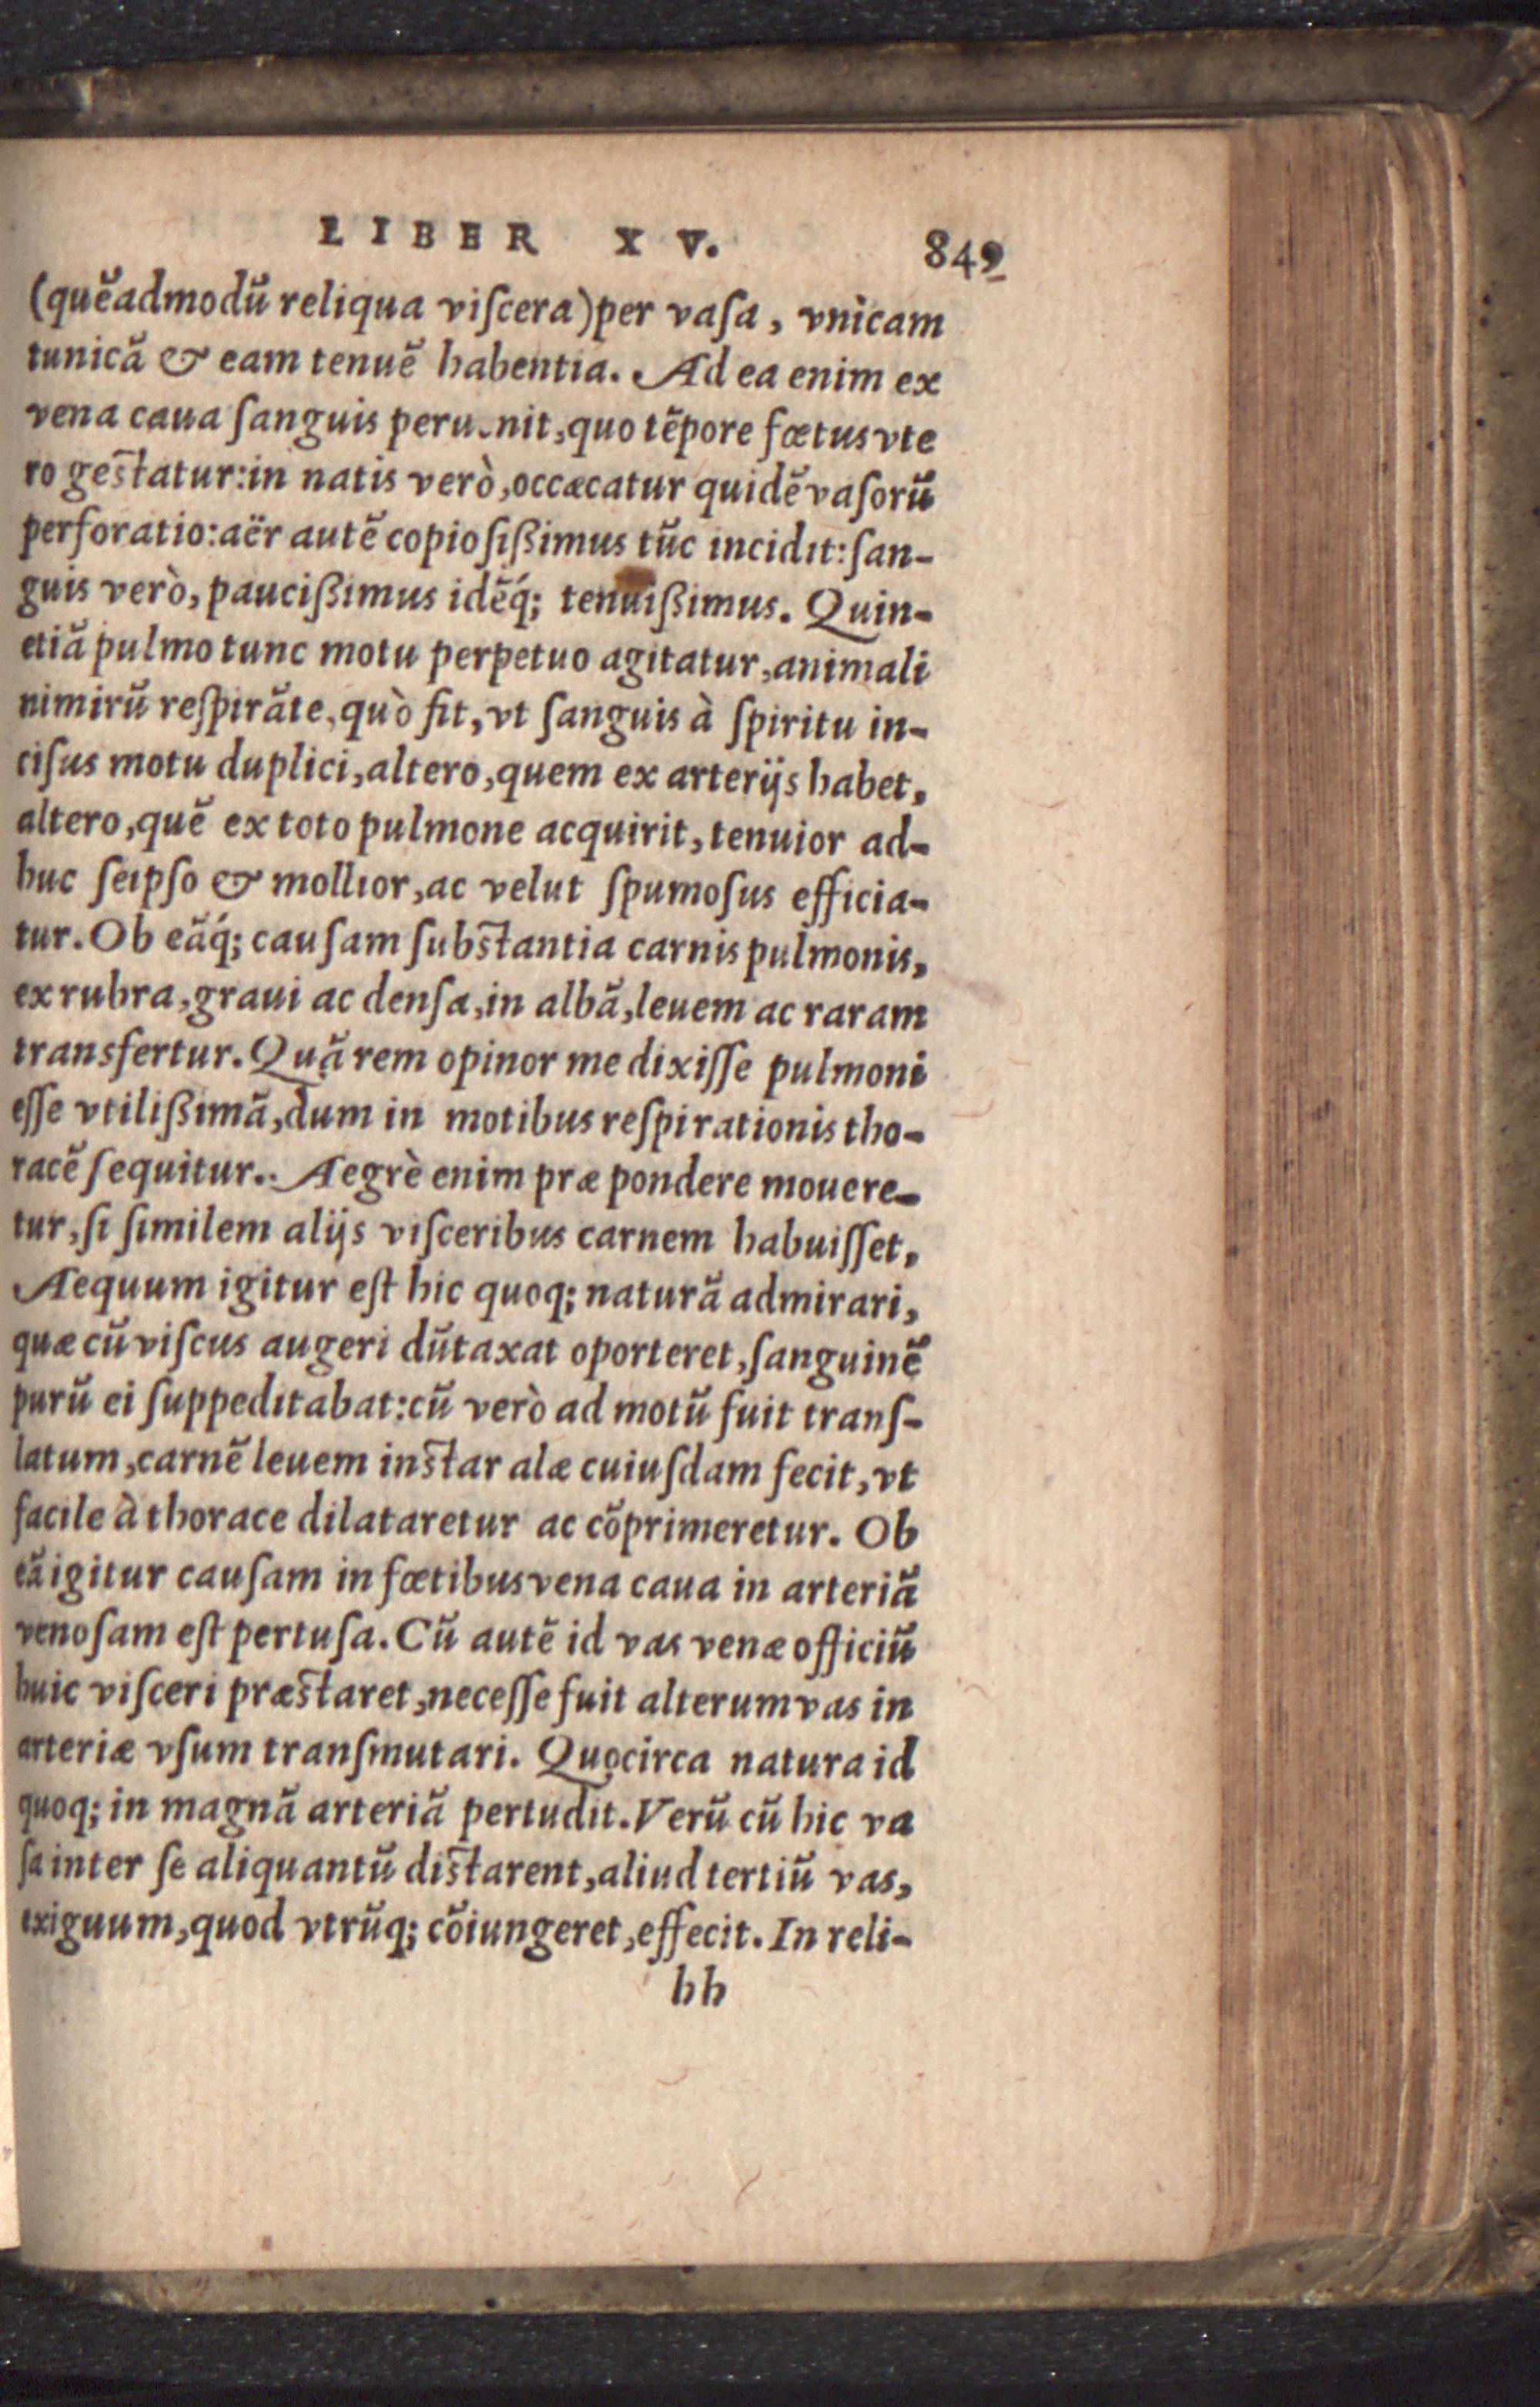 LIBER XV. 849
(quẽadmodũ reliqua viſcera) per vaſa, vnicam
tunicã & eam tenuẽ habentia. Ad ea enim ex
vena caua ſanguis peru nit, quo tẽpore fœtus vte
ro geſtatur: in natis verò, occæcatur quidẽ vaſorũ
perforatio: aër autẽ copioſißimus tũc incidit: ſan-
guis verò, paucißimus idẽq́; tenuißimus. Quin-
etiã pulmo tunc motu perpetuo agitatur, animali
nimirũ reſpirãte, quò fit, vt ſanguis à ſpiritu in-
ciſus motu duplici, altero, quem ex arterijs habet,
altero, quẽ ex toto pulmone acquirit, tenuior ad-
huc ſeipſo & mollior, ac velut ſpumoſus efficia-
tur. Ob eãq́; cauſam ſubſtantia carnis pulmonis,
ex rubra, graui ac denſa, in albã, leuem ac raram
transfertur. Quã rem opinor me dixiſſe pulmoni
eſſe vtilißimã, dum in motibus reſpirationis tho-
racẽ ſequitur. Aegrè enim præ pondere mouere-
tur, ſi ſimilem alijs viſceribus carnem habuiſſet,
Aequum igitur eſt hic quoq; naturã admirari,
quæ cũ viſcus augeri dũtaxat oporteret, ſanguinẽ
purũ ei ſuppeditabat: cũ verò ad motũ fuit tranſ-
latum, carnẽ leuem inſtar alæ cuiuſdam fecit, vt
facile à thorace dilataretur ac cõprimeretur. Ob
eã igitur cauſam in fœtibus vena caua in arteriã
venoſam eſt pertuſa. Cũ autẽ id vas venæ officiũ
huic viſceri præſtaret, neceſſe fuit alterum vas in
arteriæ vſum tranſmutari. Quocirca natura id
quoq; in magnã arteriã pertudit. Verũ cũ hic va
ſa inter ſe aliquantũ diſtarent, aliud tertiũ vas,
exiguum, quod vtrũq; cõiungeret, effecit. In reli-
hh